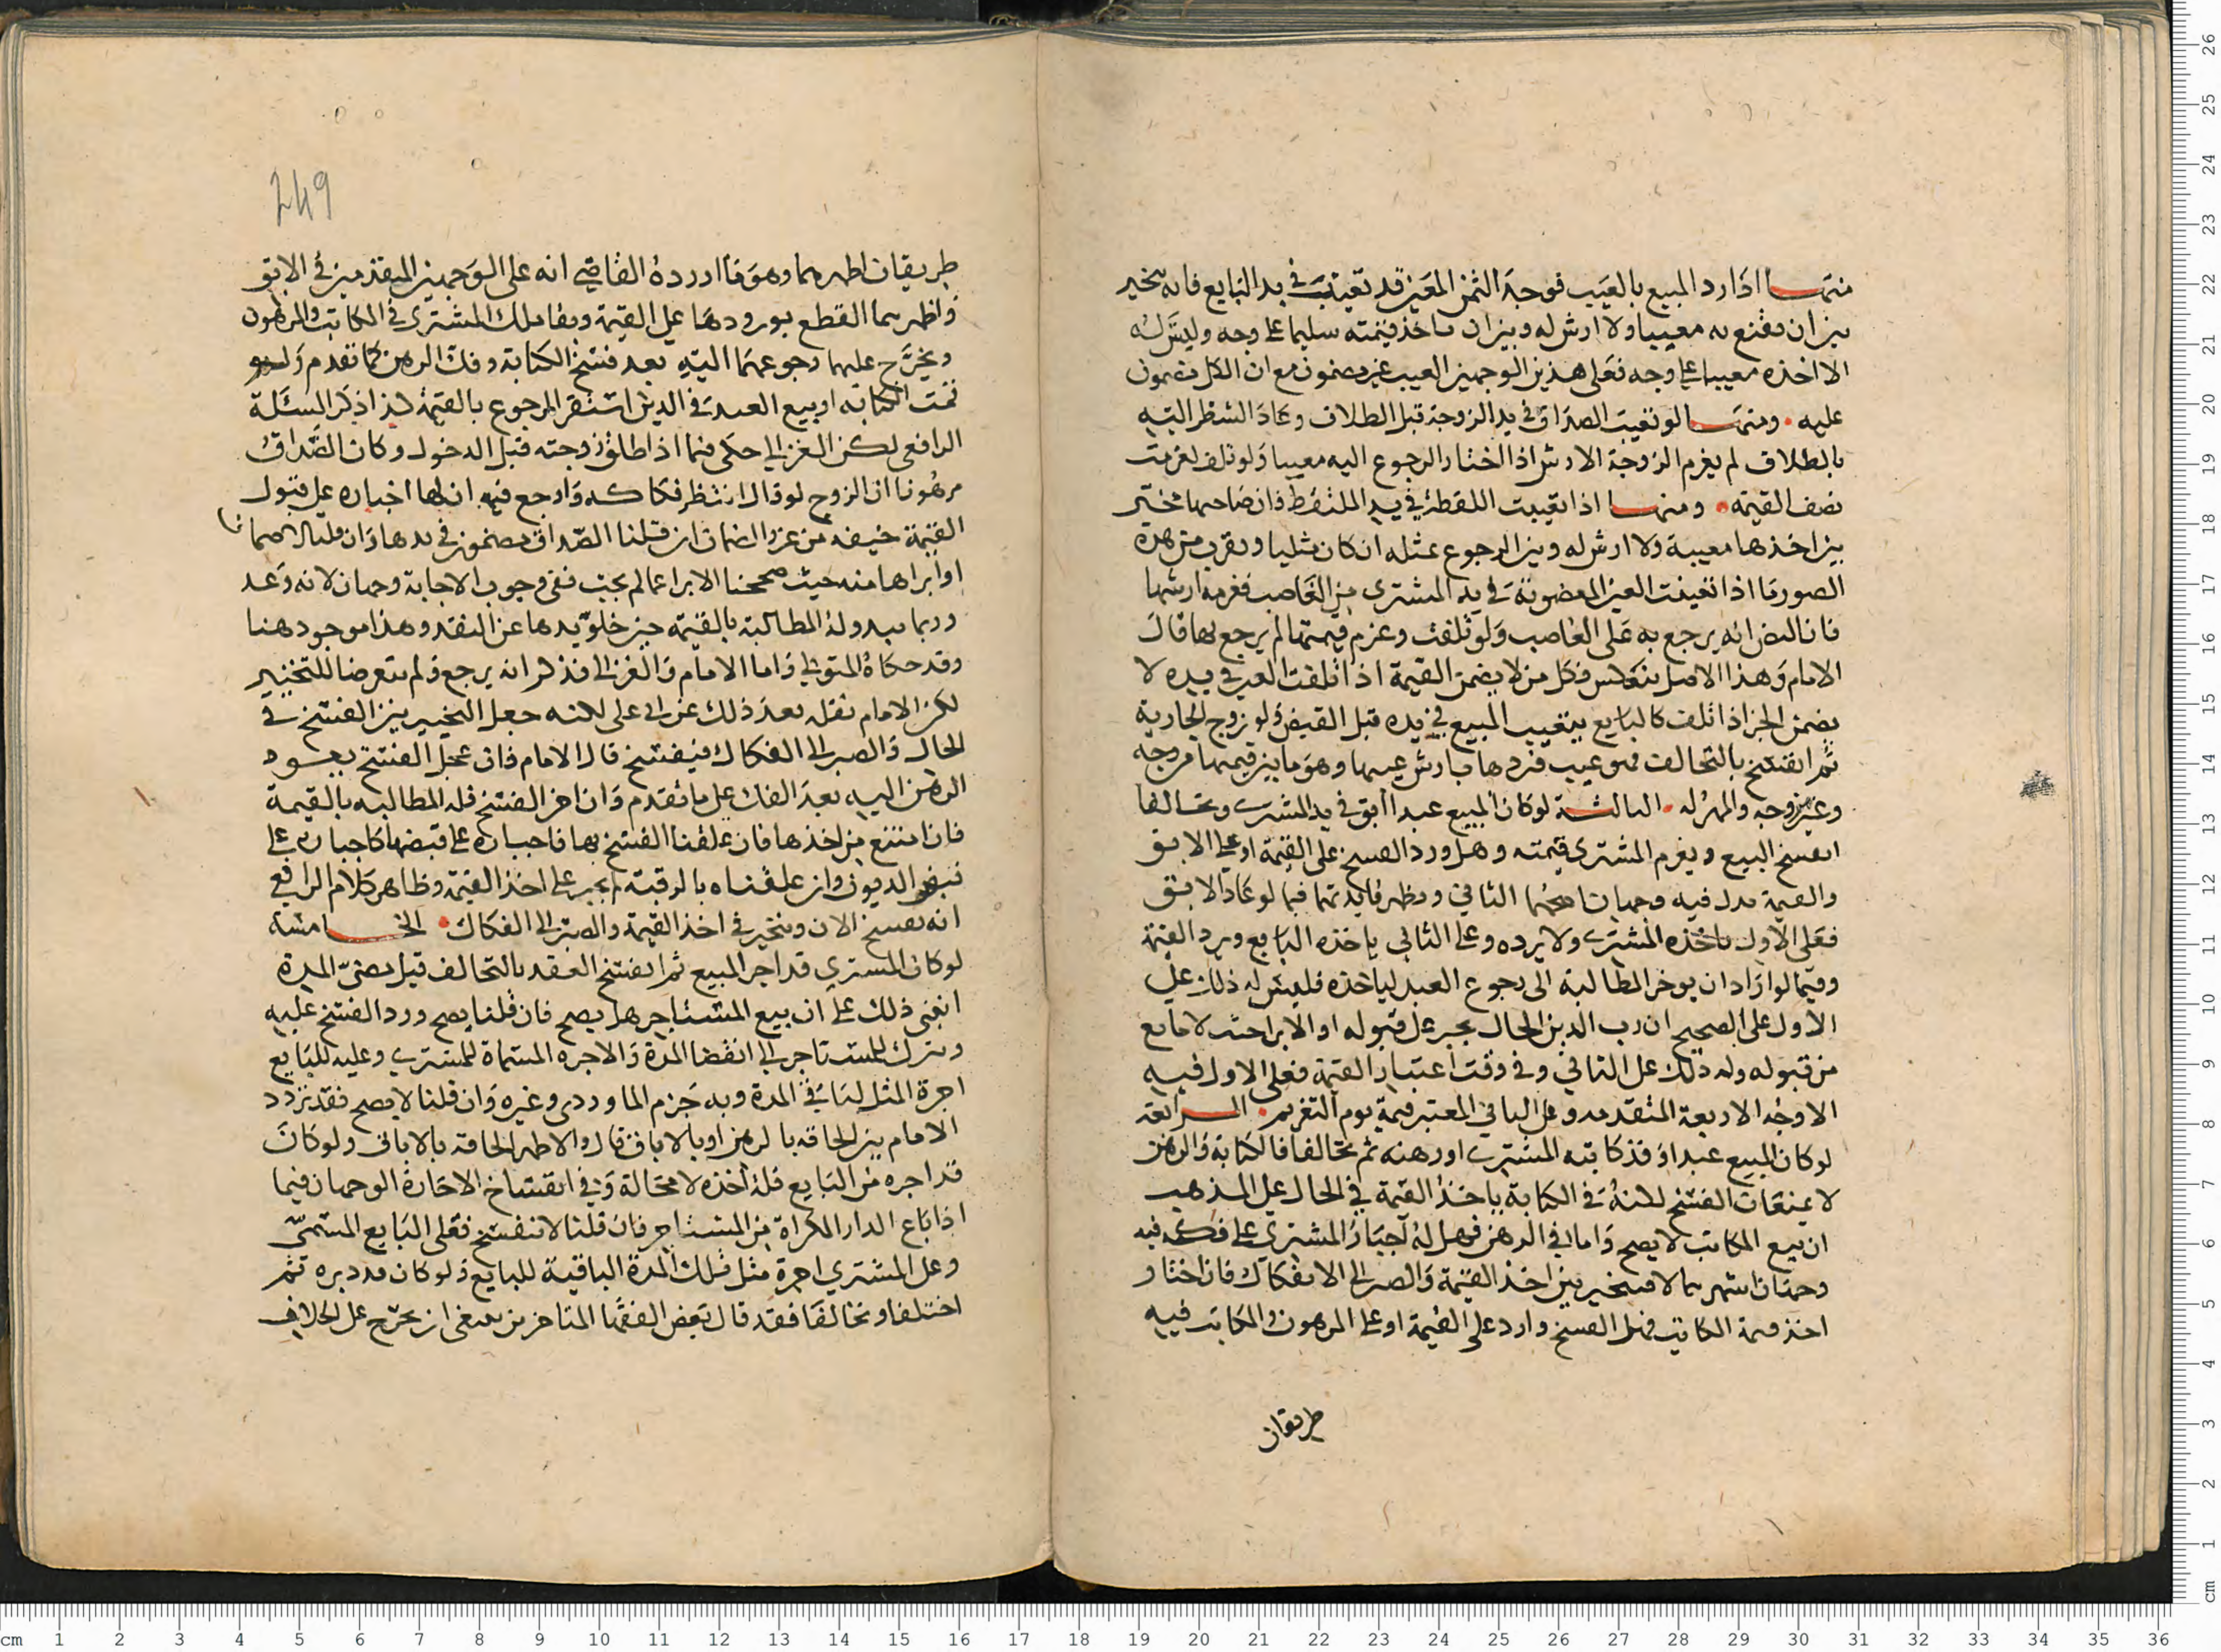 منها اذا رد المبيع بالعيب فوجد الثمن المعين قد تعيبت في يد البايع فانه يتخير
بين ان يقنع به معيبا ولا ارش له وبين ان ياخذ قيمته سليما على وجه وليس له
الا اخذه معيبا على وجه فعلى هذين الوجهين العيب غير مضمون مع ان الكل مضمون
عليه ومنها لو تعيب الصداق في يد الزوجة قبل الطلاق وعاد الشطر اليه
بالطلاق لم يغرم الزوجة الارش اذا اختار الرجوع اليه معيبا ولو تلف لغرمت
نصف القيمه ومنها اذا تعيبت اللقطة في يد الملتقط فان صاحبها مخير
بين اخذها معيبة ولا ارش له وبين الرجوع بمثله ان كان مثليا ويقرب من هذه
الصور ما اذا تعيبت العين المغصوبة في يد المشتري من الغاصب فغرمه ارشها
فان النص انه يرجع به على الغاصب ولو تلفت وغرم قيمتها لم يرجع بها قال
الامام وهذا الاصل ينعكس فكل من لا يضمن القيمة اذا تلفت العين في يده لا
يضمن الجز اذا تلف كالبايع بتعييب المبيع في يده قبل القبض ولو زوج الجارية
ثم انفسخ بالتحالف فهو عيب فردها بارش عيبها وهو ما بين قيمتها مزوجه
وغير مزوجه والمهر له الثالثة لو كان المبيع عبدا ابق في يد المشتري وتحالفا
انفسخ البيع ويغرم المشتري قيمته وهل ورد الفسخ على القيمة او على الابق
والقيمة بدل فيه وجهان اصحهما الثاني ويظهر فايدتهما فيما لو عاد الابق
فعلى الاول ياخذه المشتري ولا يرده وعلى الثاني ياخذه البايع ويرد القيمة
وفيما لو اراد ان يوخر المطالبة الى رجوع العبد لياخذه فليس له ذلك على
الاول على الصحيح ان رب الدين الحال يجبر على قبوله او الابرا حيث لا مانع
من قبوله وله ذلك على الثاني وفي وقت اعتبار القيمة فعلى الاول فيه
الاوجه الاربعة المتقدمه وعلى الثاني المعتبر قيمة يوم التغريم الرابعة
لو كان المبيع عبدا وقد كاتبه المشتري او رهنه ثم تحالفا فالكتابة والرهن
لا يمنعان الفسخ لكنه في الكتابة ياخذ القيمة في الحال على المذهب
ان بيع المكاتب لا يصح واما في الرهن فهل له اجبار المشتري على فكه فيه
وجهان اشهرهما لا فيتخير بين اخذ القيمة والصبر الى الانفكاك فان اختار
اخذ قيمة المكاتب فهل الفسخ وارد على القيمة او على المرهون والمكاتب فيه
طريقان
249
طريقان اظهرهما وهو ما اورده القاضي انه على الوجهين المتقدمين في الابق
واظهرهما القطع بورودها على القيمة وبقا ملك المشتري في المكاتب والمرهون
ويخرج عليهما رجوعهما اليه بعد فسخ الكتابة وفك الرهن كما تقدم ولو
تمت الكتابه او بيع العبد في الدين استقر الرجوع بالقيمة كذا ذكر المسئلة
الرافعي لكن الغزالي حكى فيما اذا طلق زوجته قبل الدخول وكان الصداق
مرهونا ان الزوج لو قال انتظر فكاكه وارجع فيه ان لها اجباره على قبول
القيمة خيفه من غرر الضمان ان قلنا الصداق مضمون في يدها وان قلنا لا ضمان
او ابراها منه حيث صححنا الابرا عما لم يجب ففي وجوب الاجابة وجهان لانه وعد
وربما يبدو له المطالبة بالقيمه حين خلو يدها عن النقد وهذا موجود هنا
وقد حكاه المتولي واما الامام والغزالي فذكر انه يرجع ولم يتعرضا للتخيير
لكن الامام نقل بعد ذلك عن ابي على لكنه جعل التخيير بين الفسخ في
الحال والصبر الى الفكاك فينفسخ قال الامام فان عجل الفسخ بعود
الرهن اليه بعد الفك على ما تقدم وان اخر الفسخ فله المطالبه بالقيمة
فان امتنع من اخذها فان علقنا الفسخ بها فاجباره على قبضها كاجباره على
قبض الديون وان علقناه بالرقبة لم يجبر على اخذ القيمة وظاهر كلام الرافعي
انه يفسخ الان ويتخير في اخذ القيمة والصبر الى الفكاك الخامسة
لو كان المشتري قد اجر المبيع ثم انفسخ العقد بالتحالف قبل مضي المدة
انبنى ذلك على ان بيع المستاجر هل يصح فان قلنا يصح ورد الفسخ عليه
ويترك للمستاجر الى انقضا المدة والاجره المسماة للمشتري وعليه للبايع
اجرة المثل لباقي المدة وبه جزم الماوردي وغيره وان قلنا لا يصح فقد تردد
الامام بين الحاقه بالرهن او بالاباق قال والاظهر الحاقه بالاباق ولو كان
قد اجره من البايع فله اخذه لا محالة وفي انفساخ الاجارة الوجهان فيما
اذا باع الدار المكراة من المستاجر فان قلنا لا تنفسخ فعلى البايع المسمى
وعلى المشتري اجرة مثل تلك المدة الباقية للبايع ولو كان قد دبره ثم
اختلفا وتحالفا فقد قال بعض الفقها المتاخرين ينبغي ان يخرج على الخلاف